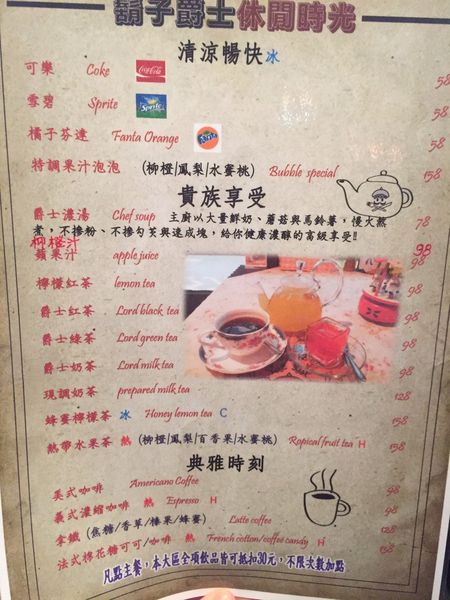 鬍子爵士休閒時光
清涼暢快冰
可樂 Coke 58
雪碧 Sprite 58
橘子芬達 Fanta Orange 58
特調果汁泡泡 (柳橙/鳳梨/水蜜桃) Bubble special 158
貴族享受
爵士濃湯 Chef soup 主廚以大量鮮奶、蘑菇與馬鈴薯,慢火熬 78
煮,不摻粉、不摻勾芡與速成塊,給你健康濃醇的高級享受!!
柳橙汁 98
蘋果汁 apple juice 98
檸檬紅茶 lemon tea 98
爵士紅茶 Lord black tea 98
爵士綠茶 Lord green tea 98
爵士奶茶 Lord milk tea 98
現調奶茶 prepared milk tea 128
蜂蜜檸檬茶 冰 Honey lemon tea C 158
熱帶水果茶 熱 (柳橙/鳳梨/百香果/水蜜桃) Ropical fruit tea H 158
典雅時刻
美式咖啡 Americano Coffee 98
義式濃縮咖啡 熱 Espresso H 98
拿鐵 (焦糖/香草/榛果/蜂蜜) Latte coffee 158
法式棉花糖可可/咖啡 熱 French cotton/coffee candy H 158
凡點主餐,本大區全項飲品皆可抵扣30元,不限次數加點